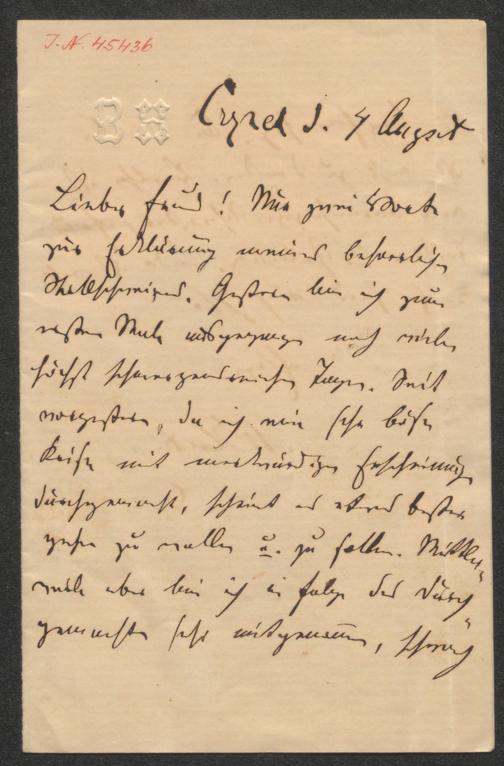 I. N. 45436
d. 4 August
Lieber Freund! Nur zwei Worte
zur Erklärung meines beharrlichen
Stillschweigens. Gestern bin ich zum
ersten Male ausgegangen nach vielen
höchst schmerzensreichen Tagen. Seit
vorgestern, da ich eine sehr böse
Krise mit merkwürdigen Erscheinungen
durchgemacht, scheint es etwas besser
gehen zu wollen u. zu sollen. Mittler-
weile aber bin ich in Folge des Durch-
gemachten sehr mitgenommen, schwach